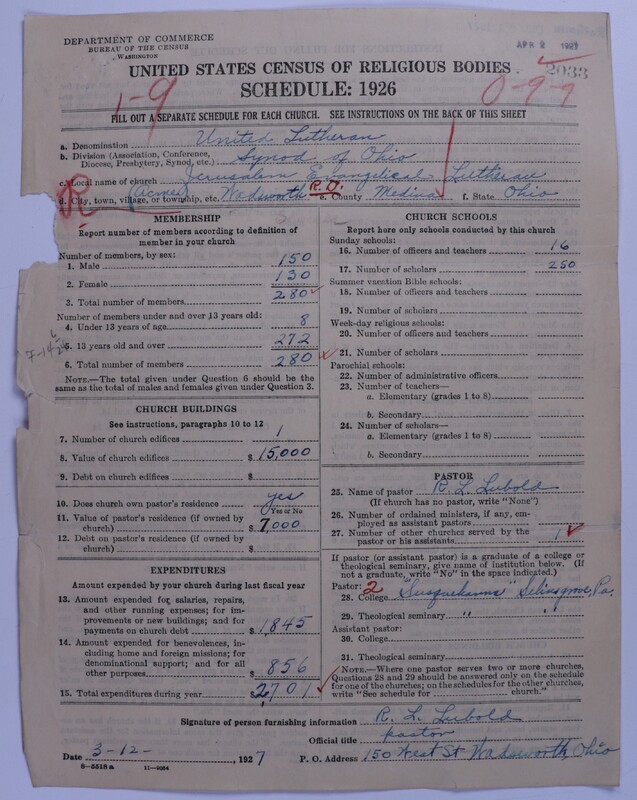 DEPARTMENT OF COMMERCE
BUREAU OF THE CENSUS
WASHINGTON
APR 2 1927
UNITED STATES CENSUS OF RELIGIOUS BODIES
2033
SCHEDULE: 1926
1-9
0-9-7
FILL OUT A SEPARATE SCHEDULE FOR EACH CHURCH. SEE INSTRUCTIONS ON THE BACK OF THIS SHEET
a. Denomination United Lutheran
b. Division (Association, Conference, Diocese, Presbytery, Synod, etc.) Synod of Ohio
c. Local name of church Jerusalem Evangelical Lutheran
(Acme) R.D.
d. City, town, village, or township, etc. Wadsworth e. County Medina f. State Ohio
R
MEMBERSHIP
Report number of members according to definition of
member in your church
Number of members, by sex:
1. Male 150
2. Female 130
3. Total number of members 280
Number of members under and over 13 years old:
4. Under 13 years of age 8
5. 13 years old and over 272
6. Total number of members 280
NOTE.—The total given under Question 6 should be
same as the total of males and females given under Question 3.
CHURCH BUILDINGS
See instructions, paragraphs 10 to 12
7. Number of church edifices 1
8. Value of church edifices $ 15,000
9. Debt on church edifices $
10. Does church own pastor's residence yes
Yes or No
11. Value of pastor's residence (if owned by
church) $ 7,000
12. Debt on pastor's residence (if owned by
church) $
EXPENDITURES
Amount expended by your church during last fiscal year
13. Amount expended for salaries, repairs,
and other running expenses; for im-
provements or new buildings; and for
payments on church debt $ 1845
14. Amount expended for benevolences, in-
cluding home and foreign missions; for
denominational support; and for all
other purposes $ 856
15. Total expenditures during year $ 2701
CHURCH SCHOOLS
Report here only schools conducted by this church
Sunday schools:
16. Number of officers and teachers 16
17. Number of scholars 250
Summer vacation Bible schools:
18. Number of officers and teachers
19. Number of scholars
Week-day religious schools:
20. Number of officers and teachers
21. Number of scholars
Parochial schools:
22. Number of administrative officers
23. Number of teachers—
a. Elementary (grades 1 to 8)
b. Secondary
24. Number of scholars—
a. Elementary (grades 1 to 8)
b. Secondary
PASTOR
25. Name of pastor R. L. Lubold
(If church has no pastor, write "None")
26. Number of ordained ministers, if any, em-
ployed as assistant pastors
27. Number of other churches served by the
pastor or his assistants 1
If pastor (or assistant pastor) is a graduate of a college or
theological seminary, give name of institution below. (If
not a graduate, write "No" in the space indicated.)
Pastor: 2
28. College "Susquehanna" Selinsgrove, Pa.
29. Theological seminary " "
Assistant pastor:
30. College
31. Theological seminary
NOTE.—Where one pastor serves two or more churches,
Questions 28 and 29 should be answered only on the schedule
for one of the churches; on the schedules for the other churches,
write "See schedule for church."
Signature of person furnishing information R. L. Lubold
Official title pastor
Date 3-12-, 1927 P. O. Address 150 West St Wadsworth, Ohio
8-5518a 11-9034